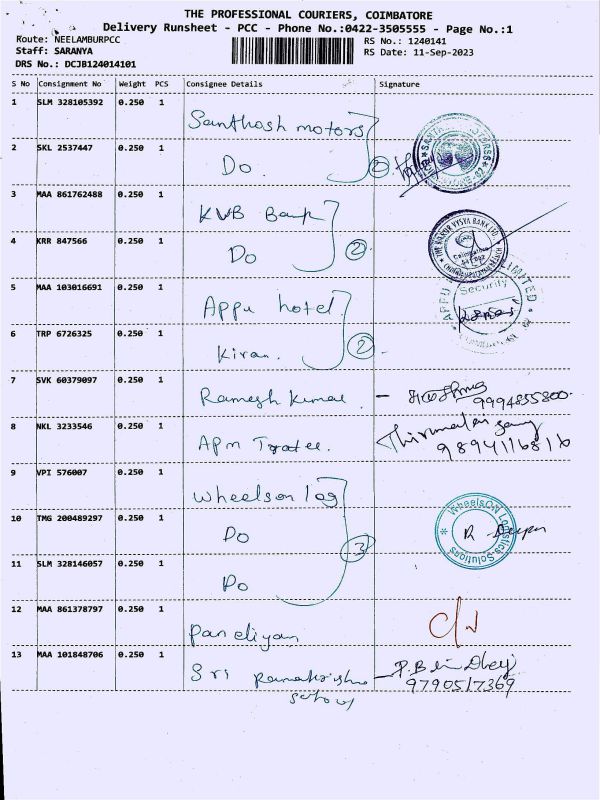 THE PROFESSIONAL COURIERS, COIMBATORE
Delivery Runsheet - PCC - Phone No.:0422-3505555 - Page No.:1
Route: NEELAMBURPCC
RS No.: 1240141
Staff: SARANYA
RS Date: 11-Sep-2023
DRS No.: DCJB124014101
S No Consignment No Weight PCS Consignee Details Signature
1 SLM 328105392 0.250 1 Santhosh motors
2 SKL 2537447 0.250 1 Do. 2
3 MAA 861762488 0.250 1 KVB Bank
THE KARUR VYSYA BANK LTD.
Coimbatore
4 KRR 847566 0.250 1 Do 2
5 MAA 103016691 0.250 1 Appu hotel.
APPU LIMITED
Security
6 TRP 6726325 0.250 1 Kiran. 2
7 SVK 60379097 0.250 1 Ramesh Kumar. - 9994855800
8 NKL 3233546 0.250 1 Apm 9894116816
9 VPI 576007 0.250 1 Wheelson log
10 TMG 200489297 0.250 1 Do 3
WheelsON Logistics Solutions
R
11 SLM 328146057 0.250 1 Do
12 MAA 861378797 0.250 1 Pandiyan
13 MAA 101848706 0.250 1 Sri Ramakrishna - P.B
9790517369